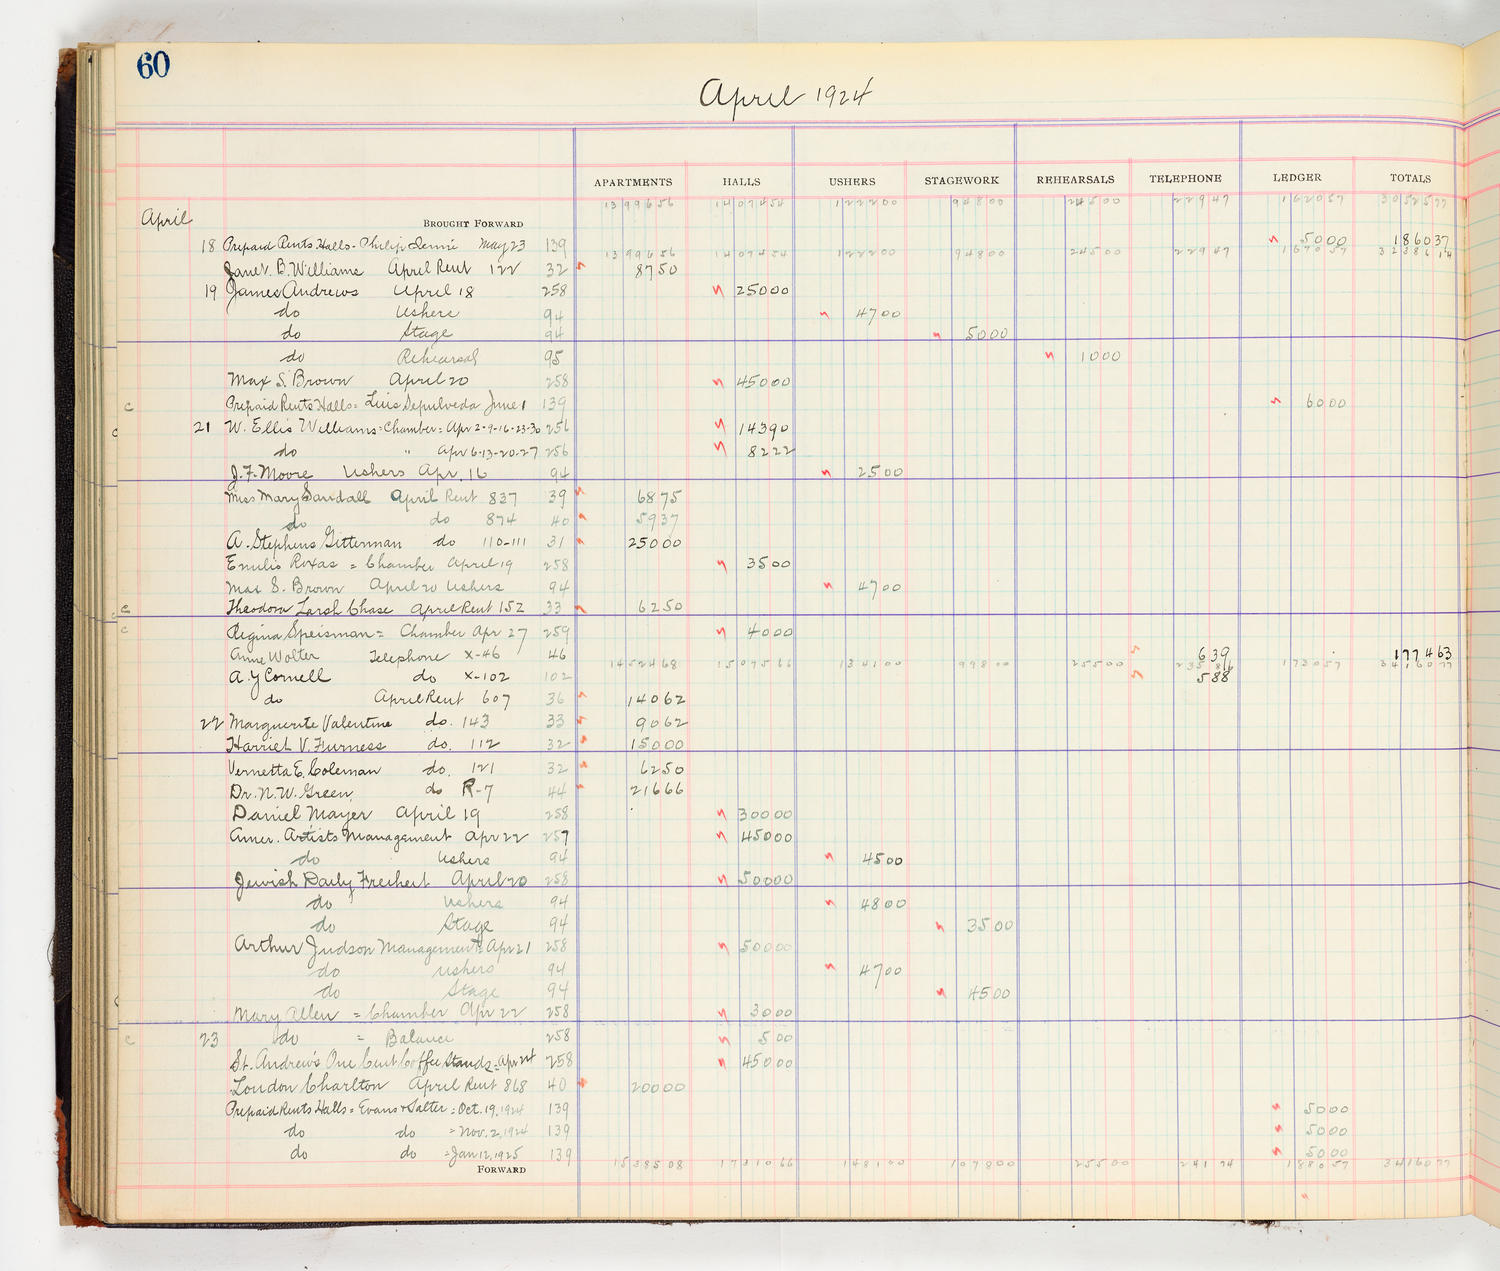 60
April 1924
APARTMENTS HALLS USHERS STAGEWORK REHEARSALS TELEPHONE LEDGER TOTALS
April BROUGHT FORWARD 1399656 1407454 122200 94800 24500 22947 162057
18 Prepaid Rents Halls - Philip May 23 139 5000 186037
1399656 1407454 122200 94800 24500 22947 167057
Janet B. Williams April Rent 122 32 8750
19 James Andrews April 18 258 25000
do Ushers 94 4700
do Stage 94 5000
do Rehearsal 95 1000
Max S. Brown April 20 258 45000
c Prepaid Rents Halls = Luis Sepulveda June 1 139 6000
c 21 W. Ellis Williams = Chamber = Apr 2-9-16-23-30 256 14390
do " Apr 6-13-20-27 256 8222
J. F. Moore Ushers Apr. 16 94 2500
Miss Mary Sandall April Rent 837 39 6875
do do 874 40 5937
A. Stephens Gitterman do 110-111 31 25000
Emilio Roxas = Chamber April 19 258 3500
Max S. Brown April 20 Ushers 94 4700
c Theodora Larsh Chase April Rent 152 33 6250
c Regina Speisman = Chamber Apr 27 259 4000
Anne Wolter Telephone X-46 46 639 177463
1452468 1507566 134100 99800 25500 173057 3416077
A. Y Cornell do X-102 102 588
do April Rent 607 36 14062
22 Marguerite Valentine do. 143 33 9062
Harriet V. Furness do. 112 32 15000
Vernetta E. Coleman do. 121 32 6250
Dr. N. W. Green, do R-7 44 21666
Daniel Mayer April 19 258 30000
Amer. Artists Management Apr 22 257 45000
do Ushers 94 4500
Jewish Daily Freiheit April 20 258 50000
do Ushers 94 4800
do Stage 94 3500
Arthur Judson Management = Apr 21 258 50000
do Ushers 94 4700
do Stage 94 4500
Mary Allen = Chamber Apr 22 258 3000
c 23 do = Balance 258 500
St. Andrew's One Cent Coffee Stands = Apr 24 258 45000
London Charlton April Rent 868 40 20000
Prepaid Rents Halls = Evans & Salter = Oct. 19, 1924 139 5000
do do = Nov. 2, 1924 139 5000
do do = Jan 12, 1925 139 5000
FORWARD 1538508 1731066 148100 107800 25500 24174 188057 3416077